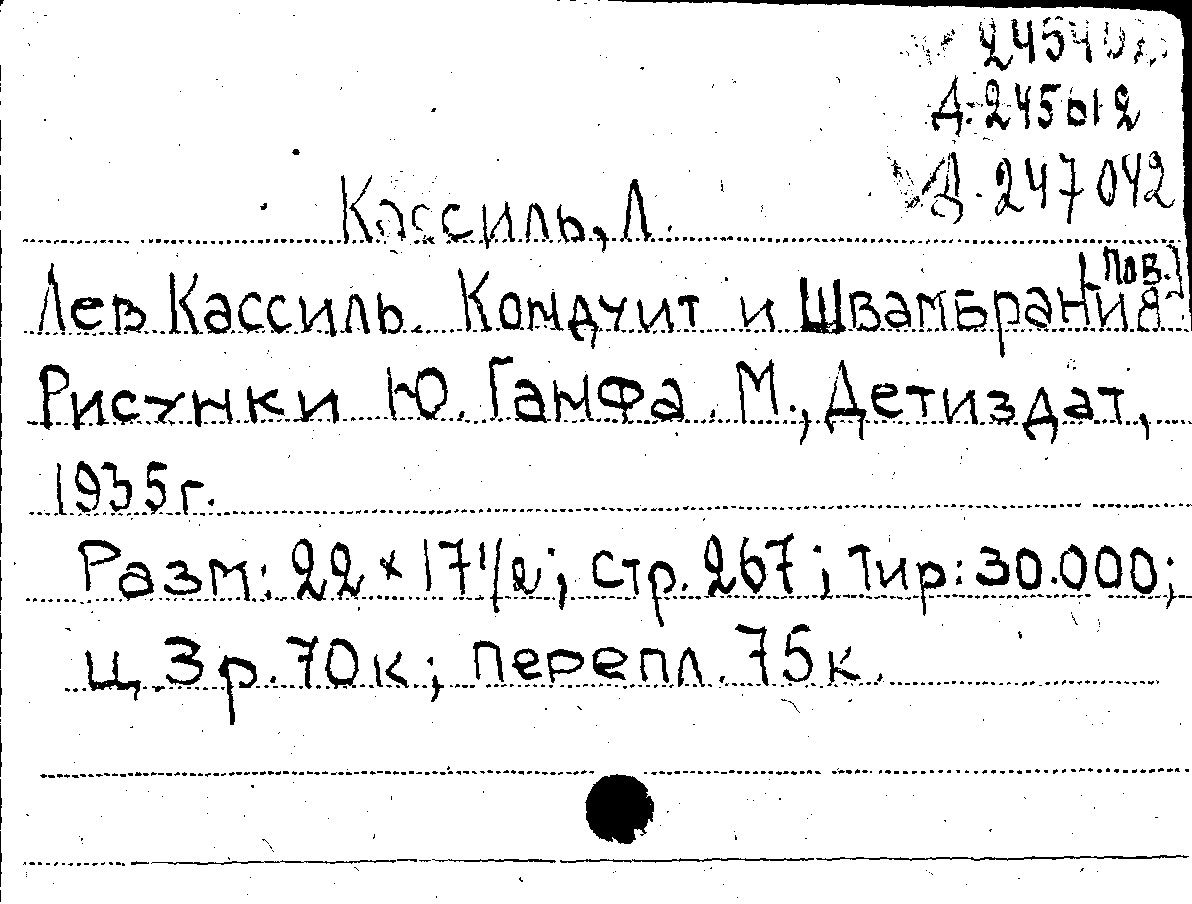 Д. 245612
Д. 247042
Кассиль, Л.
[Пов.]
Лев Кассиль. Кондуит и Швамбрания.
Рисунки Ю. Ганфа. М., Детиздат,
1935 г.
Разм: 22 × 17 1/2; стр. 267; Тир: 30.000;
ц. 3 р. 70 к; перепл. 75 к.